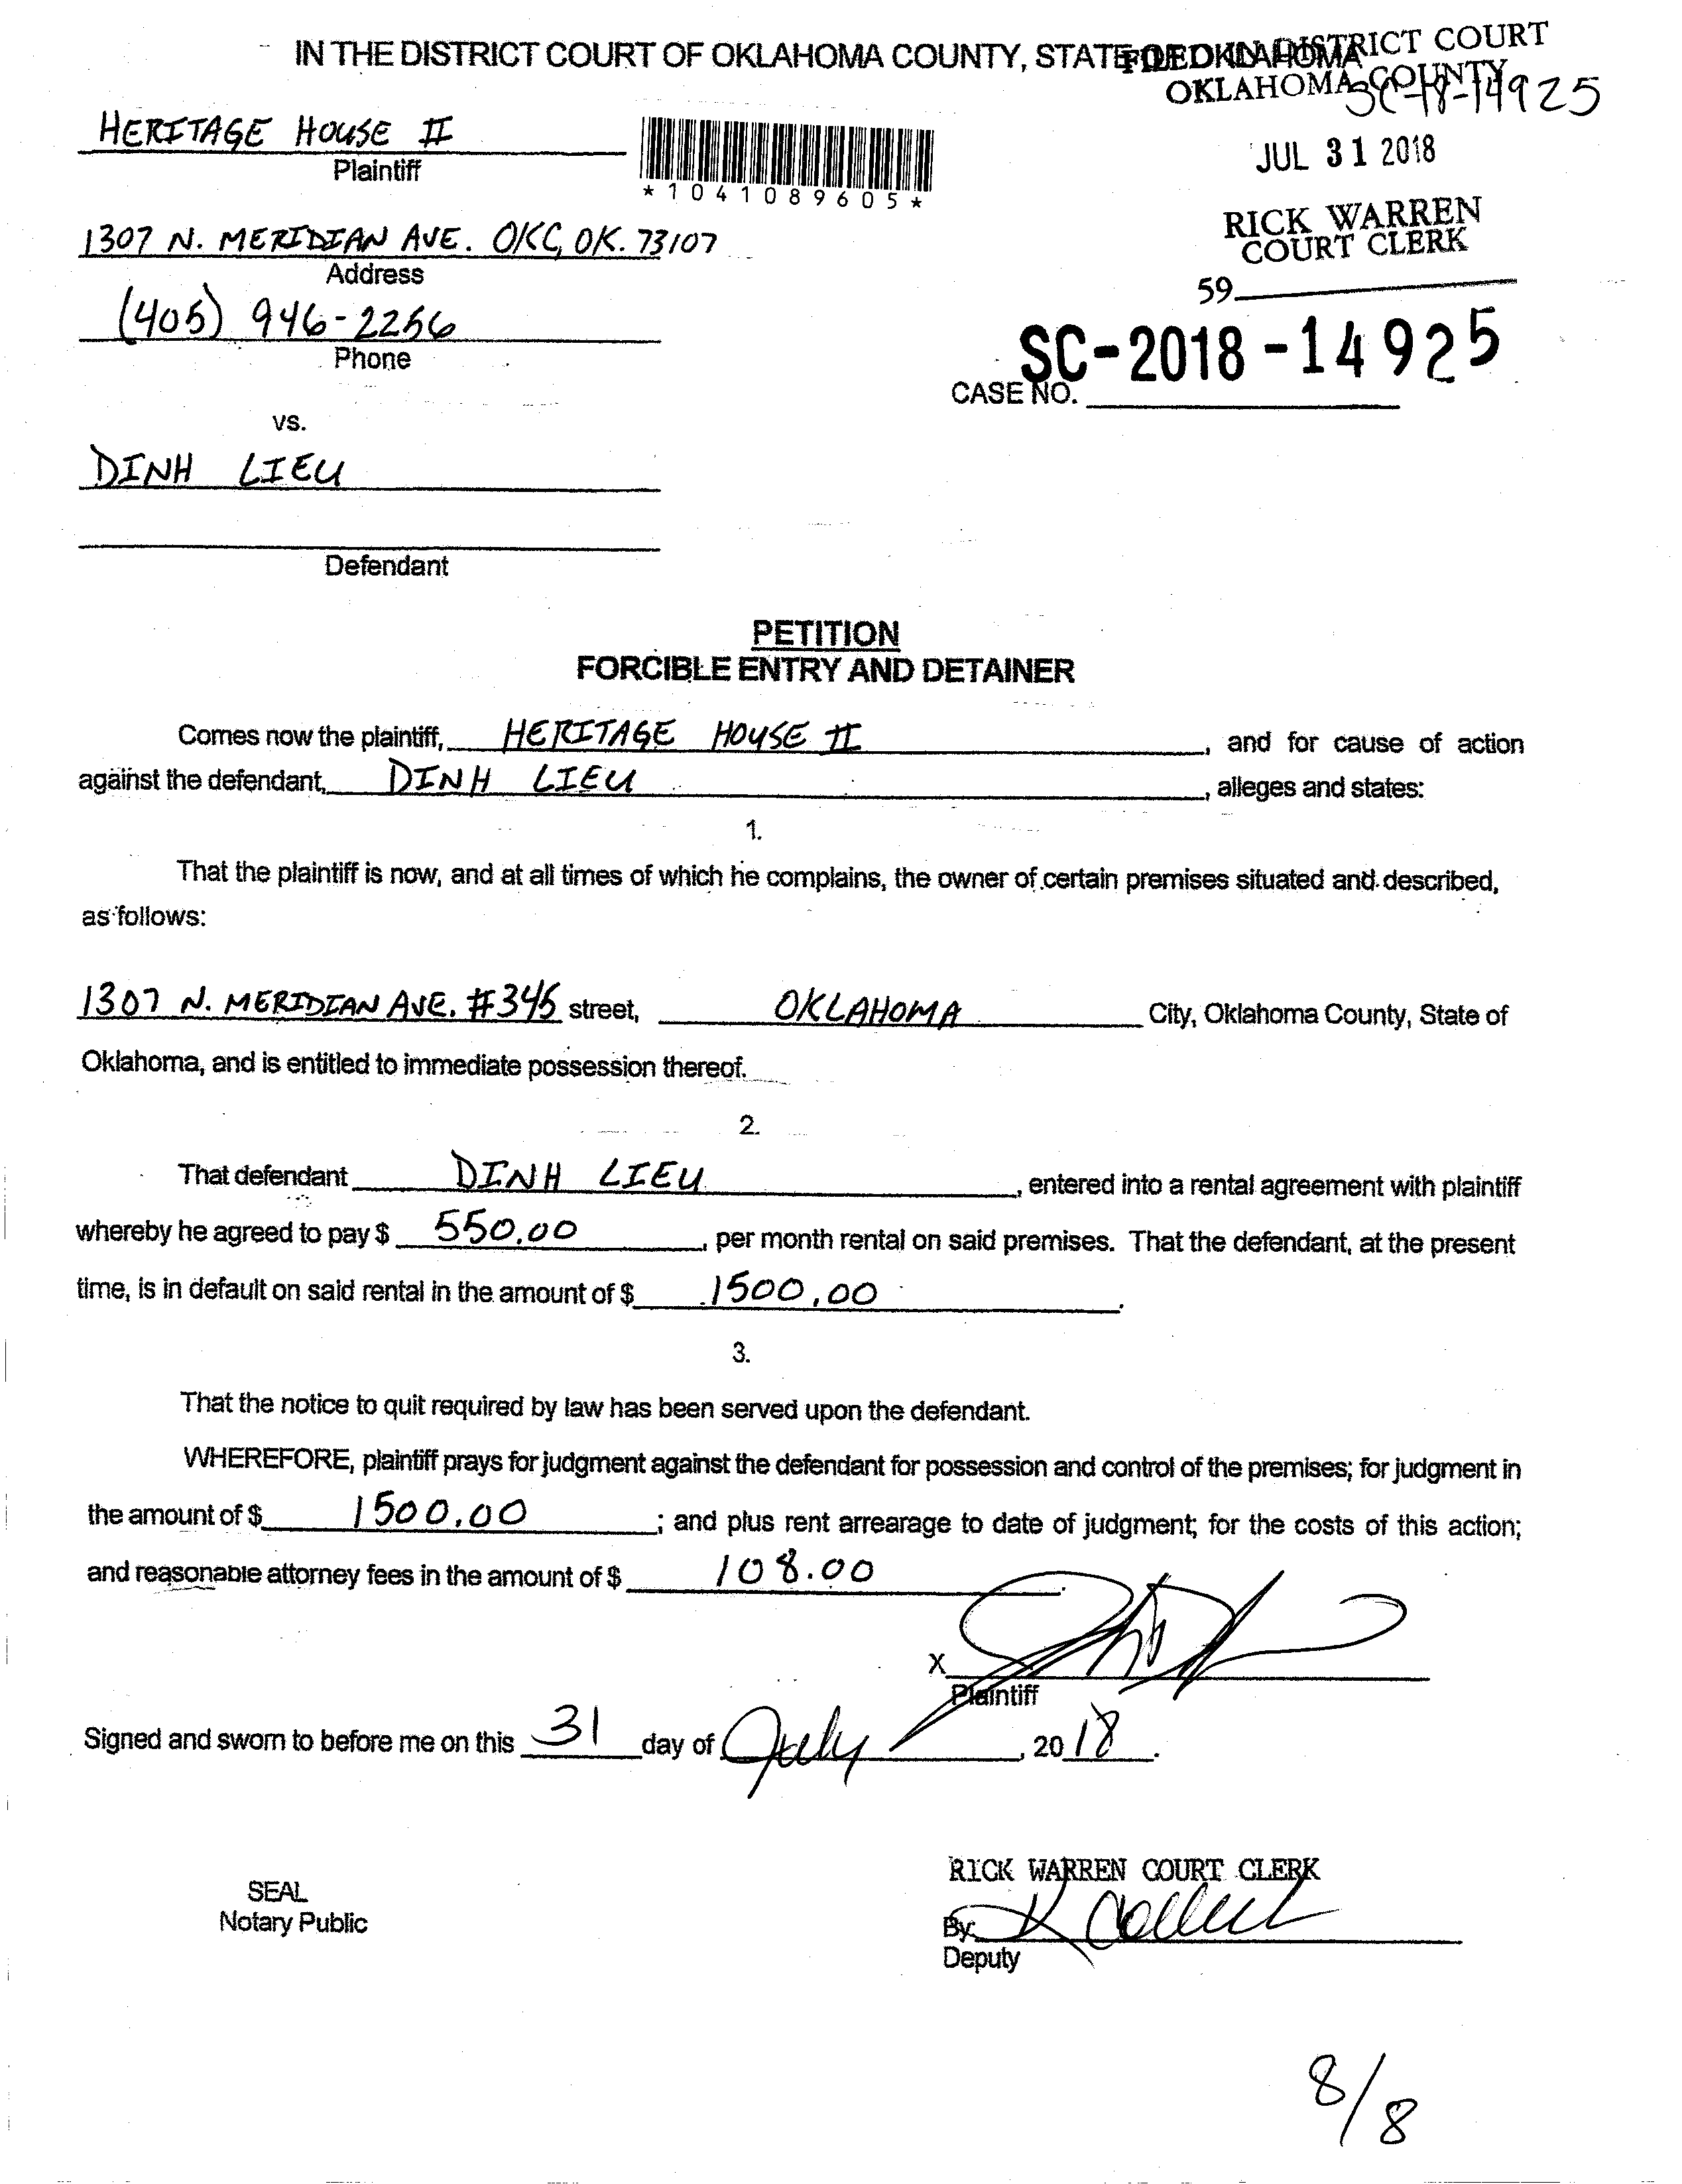 IN THE DISTRICT COURT OF OKLAHOMA COUNTY, STATE OF OKLAHOMA
FILED IN DISTRICT COURT
OKLAHOMA COUNTY
SC-18-14925
HERITAGE HOUSE II
Plaintiff
*1041089605*
JUL 31 2018
1307 N. MERIDIAN AVE. OKC, OK. 73107
Address
RICK WARREN
COURT CLERK
59
(405) 946-2256
Phone
SC-2018-14925
CASE NO.
vs.
DINH LIEU
Defendant
PETITION
FORCIBLE ENTRY AND DETAINER
Comes now the plaintiff, HERITAGE HOUSE II, and for cause of action
against the defendant, DINH LIEU, alleges and states:
1.
That the plaintiff is now, and at all times of which he complains, the owner of certain premises situated and described,
as follows:
1307 N. MERIDIAN AVE. #345 street, OKLAHOMA City, Oklahoma County, State of
Oklahoma, and is entitled to immediate possession thereof.
2.
That defendant DINH LIEU, entered into a rental agreement with plaintiff
whereby he agreed to pay $ 550.00, per month rental on said premises. That the defendant, at the present
time, is in default on said rental in the amount of $ 1500.00.
3.
That the notice to quit required by law has been served upon the defendant.
WHEREFORE, plaintiff prays for judgment against the defendant for possession and control of the premises; for judgment in
the amount of $ 1500.00; and plus rent arrearage to date of judgment; for the costs of this action;
and reasonable attorney fees in the amount of $ 108.00
X
Plaintiff
Signed and sworn to before me on this 31 day of July, 2018.
RICK WARREN COURT CLERK
SEAL
Notary Public
By K
Deputy
8/8